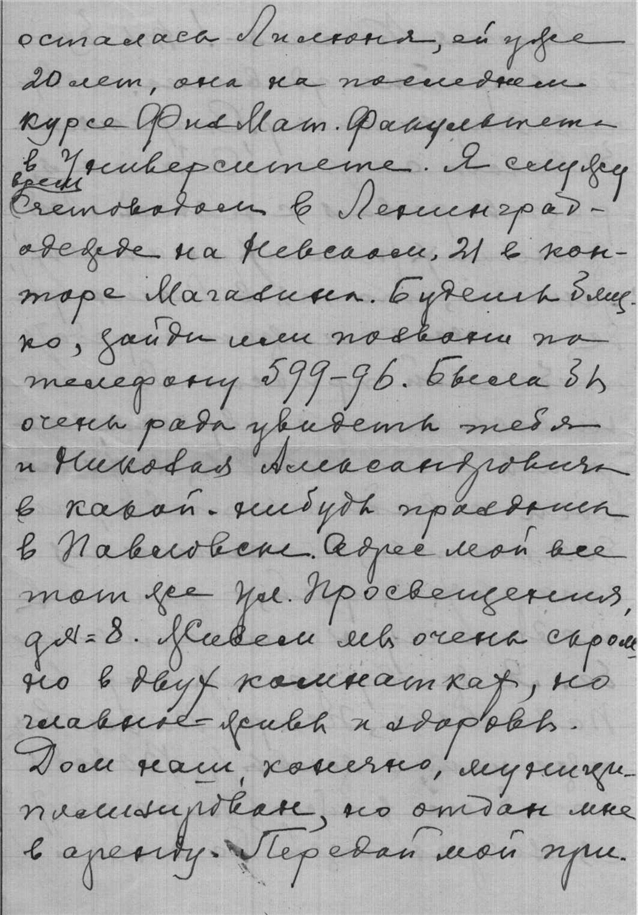 осталась Лилюня, ей уже
20 лет, она на последнем
курсе Физ Мат. Факультета
в Университете. Я служу
врем.
Счетоводом в Ленинград-
одежде на Невском, 21 в кон-
торе Магазина. Будешь близ-
ко, зайди или позвони по
телефону 599-96. Была бы
очень рада увидеть тебя
и Николая Александровича
в какой-нибудь праздник
в Павловске. Адрес мой все
тот же ул. Просвещения,
д № 8. Живем мы очень скром-
но в двух комнатках, но
главное-живы и здоровы.
Дом наш, конечно, муници-
пализирован, но отдан мне
в аренду. Передай мой при-